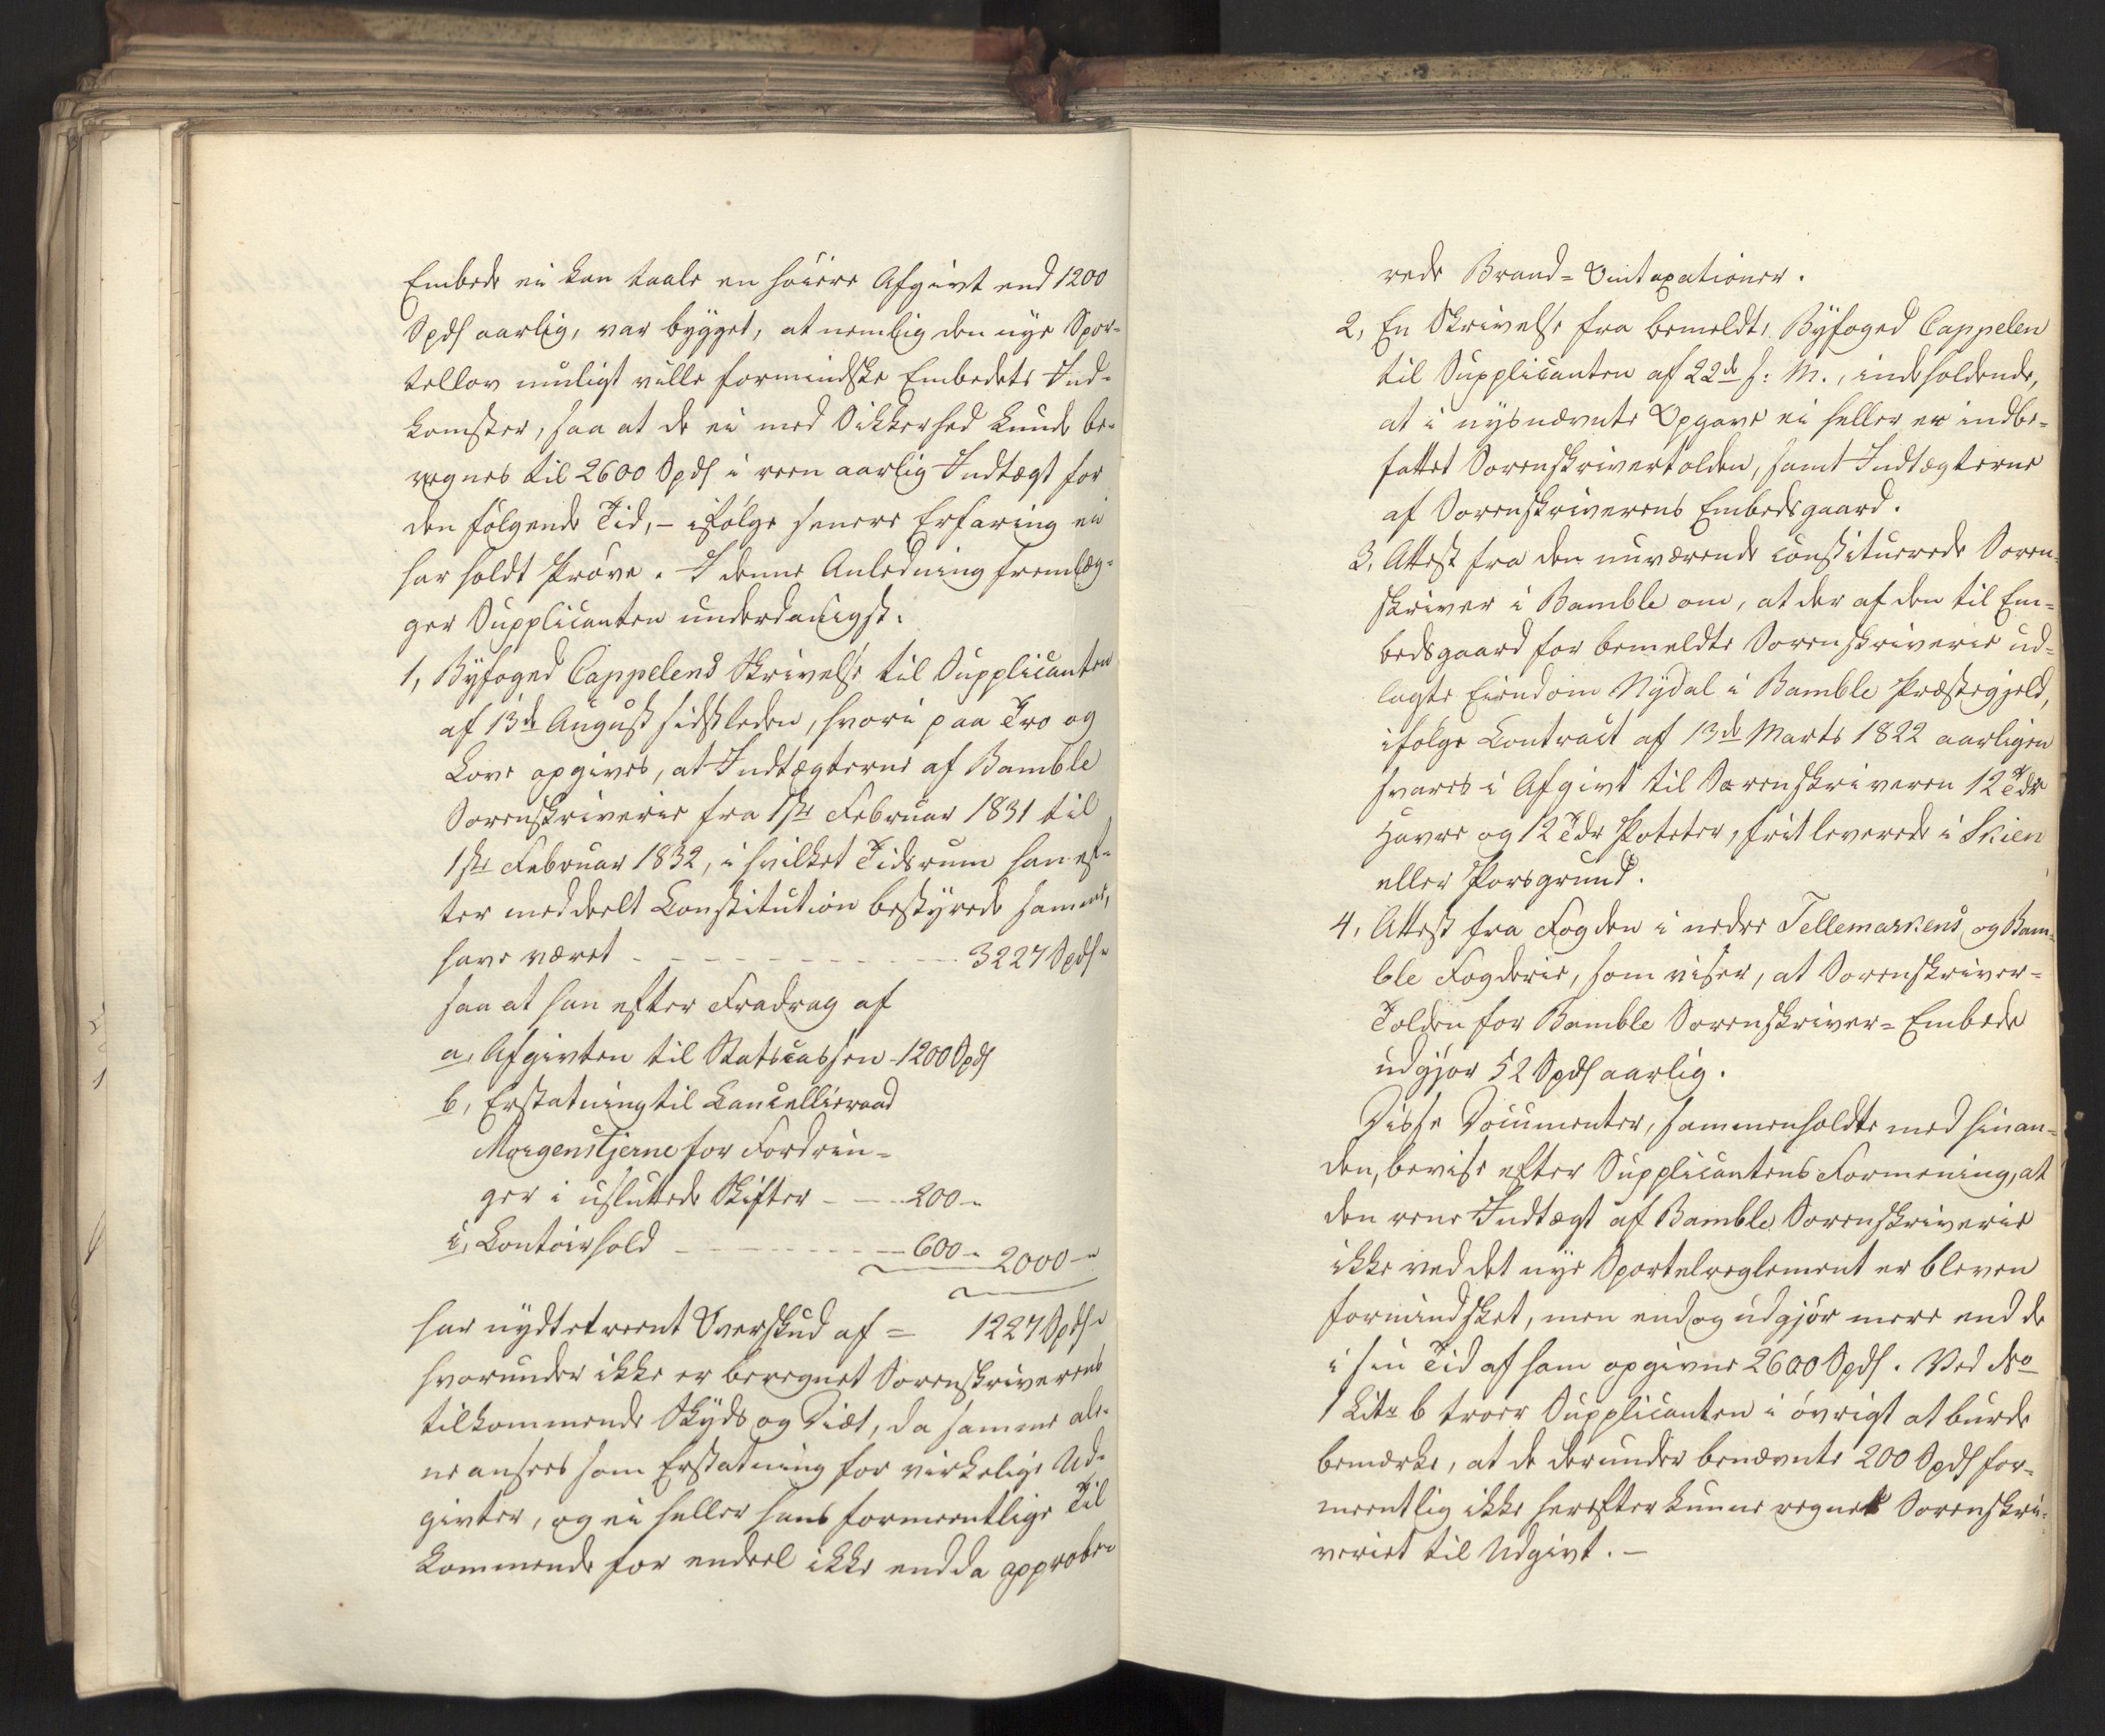 Embede ei kan taale en høiere Afgivt end 1200
Spds aarlig, var bygget, at nemlig den nye Spor-
tellov muligt vilde formindske Embedets Ind-
komster, saa at de ei med Sikkerhed kunde be-
regnes til 2600 Spds i reen aarlig Indtægt for
den følgende Tid, – ifølge senere Erfaring ei
har holdt Prøve. I denne Anledning fremlæg-
ger Supplicanten underdanigst:
1, Byfoged Cappelens Skrivelse til Supplicanten
af 13de August sidstleden, hvori paa Tro og
Love opgives, at Indtægterne af Bamble
Sorenskriverie fra 1ste Februar 1831 til
1ste Februar 1832, i hvilket Tidsrum han ef-
ter meddeelt Constitution bestyrede samme,
have været - - - - - - - - - - 3227 Spds"
saa at han efter Fradrag af
a, Afgivten til Statscassen - 1200 Spds
b, Erstatning til Cancellieraad
Morgenstjerne for Fordrin-
ger i usluttede Skifter - - - 200 - "
c, Contoirhold - - - - - - - - 600 - " 2000 - "
har nydt et reent Overskud af = 1227 Spds"
hvorunder ikke er beregnet Sorenskriverens
tilkommende Skyds og Diæt, da samme ale-
ne ansees som Erstatning for virkelige Ud-
givter, og ei heller hans formeentlige Til
kommende for endeel ikke endda approbe-
rede Brand-Omtaxationer.
2, En Skrivelse fra bemeldte Byfoged Cappelen
til Supplicanten af 22de f: M., indeholdende,
at i nysnævnte Opgave ei heller er indbe-
fattet Sorenskrivertolden, samt Indtægterne
af Sorenskriverens Embedsgaard.
3, Attest fra den nuværende constituerede Soren-
skriver i Bamble om, at der af den til Em-
bedsgaard for bemeldte Sorenskriverie ud-
lagte Eiendom Nydal i Bamble Præstegjeld,
ifølge Contract af 13de Marts 1822 aarligen
svares i Afgivt til Sorenskriveren 12 Tdr
Havre og 12 Tdr Poteter, frit leverede i Skien
eller Porsgrund.
4, Attest fra Fogden i nedre Tellemarkens og Bam-
ble Fogderie, som viser, at Sorenskriver-
Tolden for Bamble Sorenskriver-Embede
udgjør 52 Spds aarlig.
Disse Documenter, sammenholdte med hinan-
den, bevise efter Supplicantens Formening, at
den rene Indtægt af Bamble Sorenskriverie
ikke ved det nye Sportelreglement er bleven
formindsket, men endog udgjør mere end de
i sin Tid af ham opgivne 2600 Spds. Ved No
1 Litr b troer Supplicanten i øvrigt at burde
bemærke, at de derunder benævnte 200 Spds for-
meentlig ikke herefter kunne regnes Sorenskri-
veriet til Udgivt. –